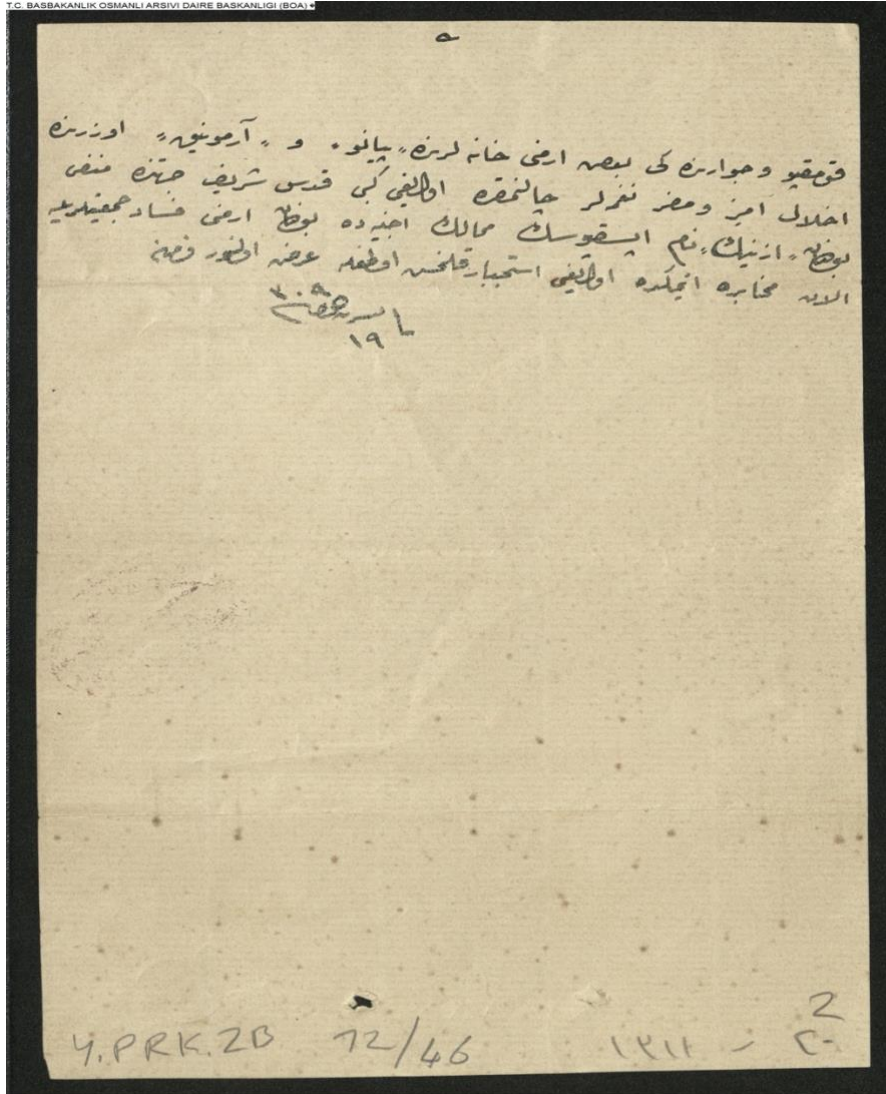 T.C. BASBAKANLIK OSMANLI ARSIVI DAIRE BASKANLIGI (BOA)
قومقپو و جوارنده كی بعض ارمنی خانه لرنده „پیانو“ و „آرمونیق“ اوزرنده
اخلال آمیز و مضر نغمه لر چالنمقده اولدیغی كبی قدس شریف جهتنه منفی
بولنان „ازنیك“ نام اپسقپوسك ممالك اجنبیه ده بولنان ارمنی فساد جمعیتلریله
الان مخابره ایتمكده اولدیغی استخبار قلنمش اولمغله عرض اولنور فرمان
١٩
Y.PRK.ZB 12/46
٢٠ ر ١٣١١
2